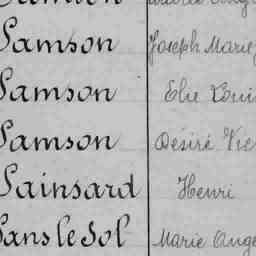 Samson Joseph Marie
Samson Elie Loui
Samson Désiré Vic
Sainsard Henri
Sans le Sol Marie Ange